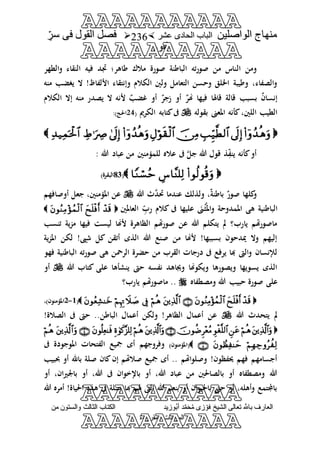 منهاج الواصلين الباب الحادى عشر 236 فصل القول فى سرّ
ومن الناس من صورته الباطنة صورة ملاك طاهر؛ تجد فيه النقاء والطهر
والصفاء، وطيبة الخلق وحسن التعامل ولين الكلام وإنتقاء الألفاظ! لا يغضب منه
إنسانٌ بسبب قالة قالها فيها نَهرٌ أو زجرٌ أو غضبٌ لأنه لا يصدر منه إلا الكلام
الطيب اللين، كأنه المعنى بقوله فى كتابه الكريم (24الحج):
﴿ وَهُدُوٓا۟ إِلَى ٱلطَّيِّبِ مِنَ ٱلْقَوْلِ وَهُدُوٓا۟ إِلَىٰ صِرَٰطِ ٱلْحَمِيدِ ﴾
أو كأنه ينفّذ قول الله جلّ فى علاه للمؤمنين من عباد الله :
﴿ وَقُولُوا۟ لِلنَّاسِ حُسْنًا ﴾ (83البقرة)
وكلها صورٌ باطنةٌ، ولذلك عندما تحدّث الله عن المؤمنين، جعل أوصافهم
الباطنية هى الممدوحة والمُثْنَى عليها فى كلام ربّ العالمين ﴿ قَدْ أَفْلَحَ ٱلْمُؤْمِنُونَ ﴾
ماصورتهم يارب؟ لم يتكلم الله عن صورتهم الظاهرة لأنها ليست فيها مزية تنسب
إليهم ولا يمدحون بسببها! لأنها من صنع الله الذى أتقن كل شئ! لكن المزية
للإنسان والتى بها يرفع فى درجات القرب من حضرة الرحمن هى صورته الباطنية فهو
الذى يسويها ويصورها ويكونها ويجاهد نفسه حتى ينشأها على كتاب الله أو
على صورة حبيب الله ومصطفاه .. ماصورتهم يارب؟
﴿ قَدْ أَفْلَحَ ٱلْمُؤْمِنُونَ ۝ ٱلَّذِينَ هُمْ فِى صَلَاتِهِمْ خَٰشِعُونَ ﴾ (1-2المؤمنون)،
لم يتحدث الله عن أعمال الظاهر! ولكن أعمال الباطن.. حتى فى الصلاة!
﴿ وَٱلَّذِينَ هُمْ عَنِ ٱللَّغْوِ مُعْرِضُونَ ۝ وَٱلَّذِينَ هُمْ لِلزَّكَوٰةِ فَٰعِلُونَ ۝ وَٱلَّذِينَ هُمْ
لِفُرُوجِهِمْ حَٰفِظُونَ ۝ ﴾ (المؤمنون)، وفروجهم أى جميع الفتحات الموجودة فى
أجسامهم فهم يحفظون! وصلواتهم .. أى جميع صلاتهم إن كان صلة بالله أو بحبيب
الله ومصطفاه أو بالصالحين من عباد الله، أو بالإخوان فى الله، أو بالجيران، أو
العارف بالله تعالى الشيخ فوْزى مُحمَّد أبُوزيد الكتاب الثالث والستون من